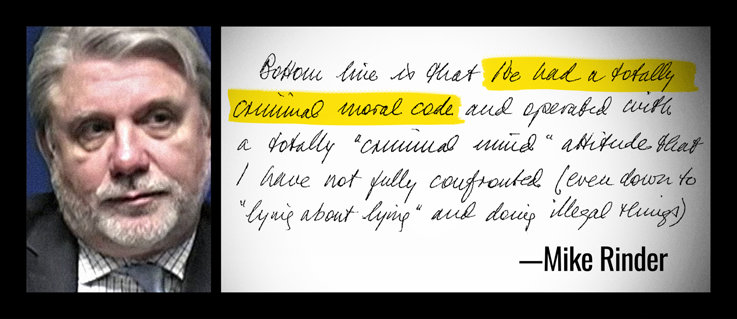 Bottom line is that I've had a totally
criminal moral code and operated with
a totally "criminal mind" attitude that
I have not fully confronted (even down to
"lying about lying" and doing illegal things)
—Mike Rinder